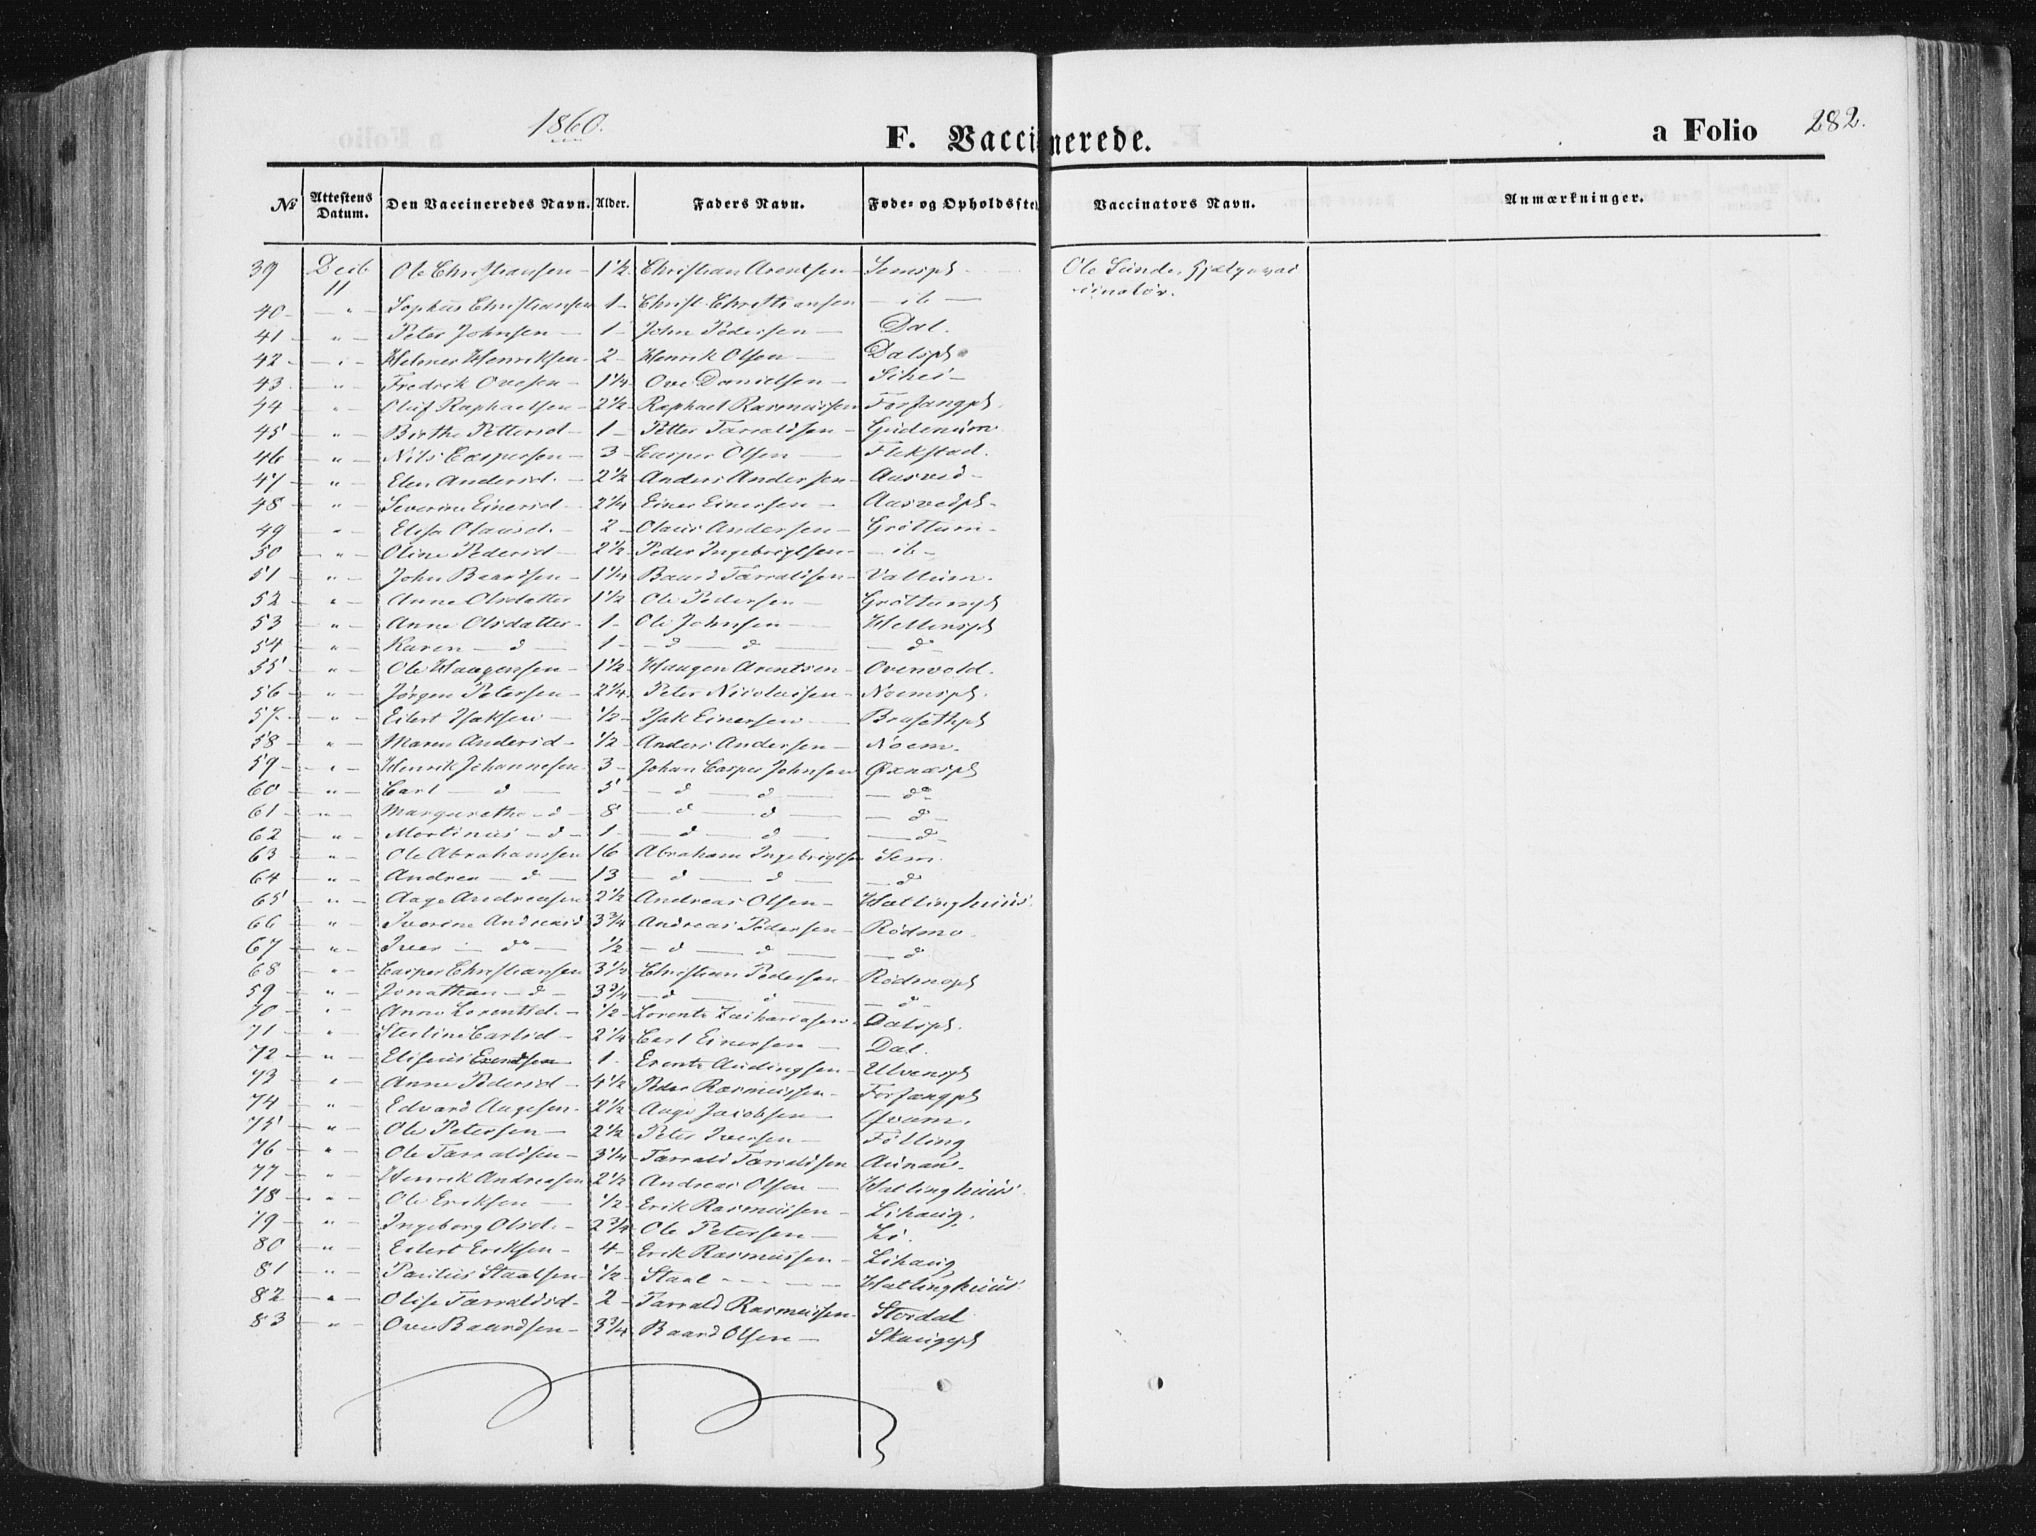 1860.
F. Vaccinerede.
a Folio 282.
No Attestens Datum. Den Vaccineredes Navn. Alder. Faders Navn. Føde- og Opholdsste Vaccinators Navn. Anmærkninger.
39 Decb 11 Ole Christiansen 1½ Christian Arentsen Semspl Ole Sunde, Hjælpevac
cinatør.
40 " Sophus Christiansen 1 Christ. Christiansen ib
41 " Peter Johnsen 1 John Pedersen Dal.
42 " Helmer Henriksen 2 Henrik Olsen Dalspl
43 " Fredrik Ovesen 1¼ Ove Danielsen
44 " Oluf Raphaelsen 2½ Raphael Rasmussen Forfangpl
45 " Birthe Pettersd 1 Petter Tarraldsen Gudenum
46 " Nils Caspersen 3 Casper Olsen Flekstad.
47 " Elen Andersd. 2½ Anders Andersen Aasved
48 " Severine Einersd 2¼ Einer Einersen Aasvedpl
49 " Elisa Olausd. 2 Olaus Andersen Grøttum
50 " Oline Pedersd 2½ Peder Ingebrigtsen ib
51 " John Baardsen 1¼ Baard Tarraldsen Vallum.
52 " Anne Olsdatter 1½ Ole Pedersen Grøttumpl
53 " Anne Olsdatter 1 Ole Johnsen Hellemspl
54 " Karen d 1 d d do
55 " Ole Haagensen 1½ Haagen Arentsen Overvold.
56 " Jørgen Petersen 2¼ Peter Nicolaisen Noemspl.
57 " Eilert Isaksen ½ Isak Einersen Brasethpl
58 " Maren Andersd ½ Anders Andersen Noem.
59 " Henrik Johannesen 3 Johan Casper Johnsen Øxnæspl
60 " Carl d 5 d d do
61 " Margarethe d 8 d d d
62 " Mortinus d 1 d d d
63 " Ole Abrahamsen 16 Abraham Ingebrigtsen Sem.
64 " Andrea d 13 d d d
65 " Aage Andreasen 2½ Andreas Olsen Hallinghuus.
66 " Iverine Andreasd 3¾ Andreas Pedersen Rødmo.
67 " Iver do ½ d d d
68 " Casper Christiansen 3½ Christian Pedersen Rødmopl
59 " Jonathan d 3¾ d d d
70 " Anne Lorentsd. ½ Lorents Zachariasen Dalspl.
71 " Carlsd 2¼ Carl Einersen Dal.
72 " Eliseus Erentsen 1 Erents Audingsen Ulvenspl
73 " Anne Pedersd 4½ Peder Rasmussen Forfangpl
74 " Edvard Aagesen 2½ Aage Jacobsen Qvam.
75 " Ole Petersen 2½ Peter Iversen Følling
76 " Ole Tarraldsen 3¼ Tarrald Tarraldsen Aunan
77 " Henrik Andreasen 2½ Andreas Olsen Hallinghuus.
78 " Ole Eriksen ½ Erik Rasmussen Lihaug.
79 " Ingeborg Olsd. 2¾ Ole Petersen Li.
80 " Eilert Eriksen 4 Erik Rasmussen Lihaug
81 " Paulus Staalsen ½ Staal Hallinghuus
82 " Olise Tarraldsd 2 Tarrald Rasmussen Stordal
83 " Ove Baardsen 3¾ Baard Olsen Skaugepl